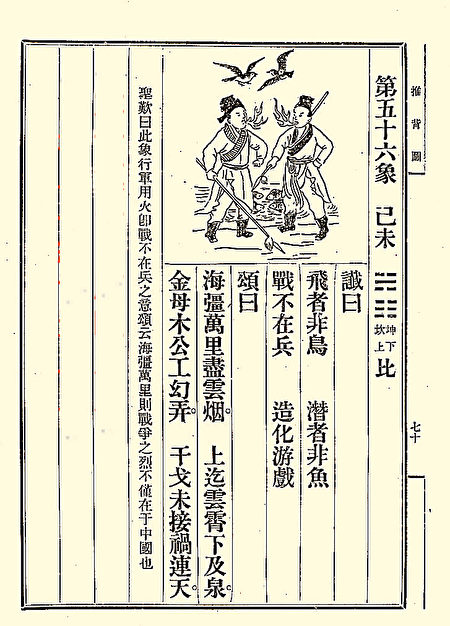 推背圖
第五十六象 己未 坤下坎上 比
讖曰
飛者非鳥 潛者非魚
戰不在兵 造化游戲
頌曰
海疆萬里盡雲烟。上迄雲霄下及泉。
金母木公工幻弄。干戈未接禍連天。
聖歎曰此象行軍用火卽戰不在兵之意頌云海疆萬里則戰爭之烈不僅在于中國也
七十